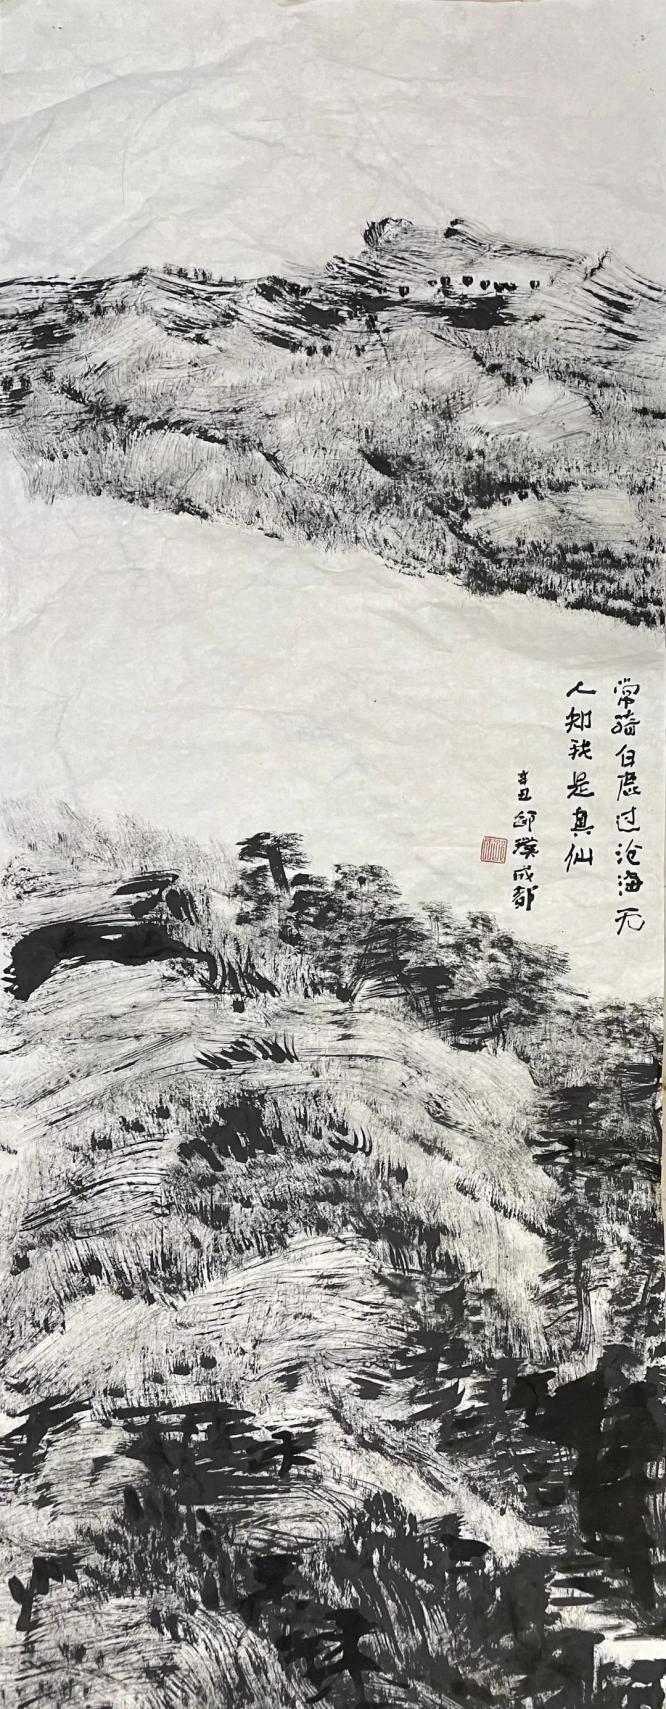 常骑白鹿过沧海无
人知我是真仙
辛丑邱璞成都